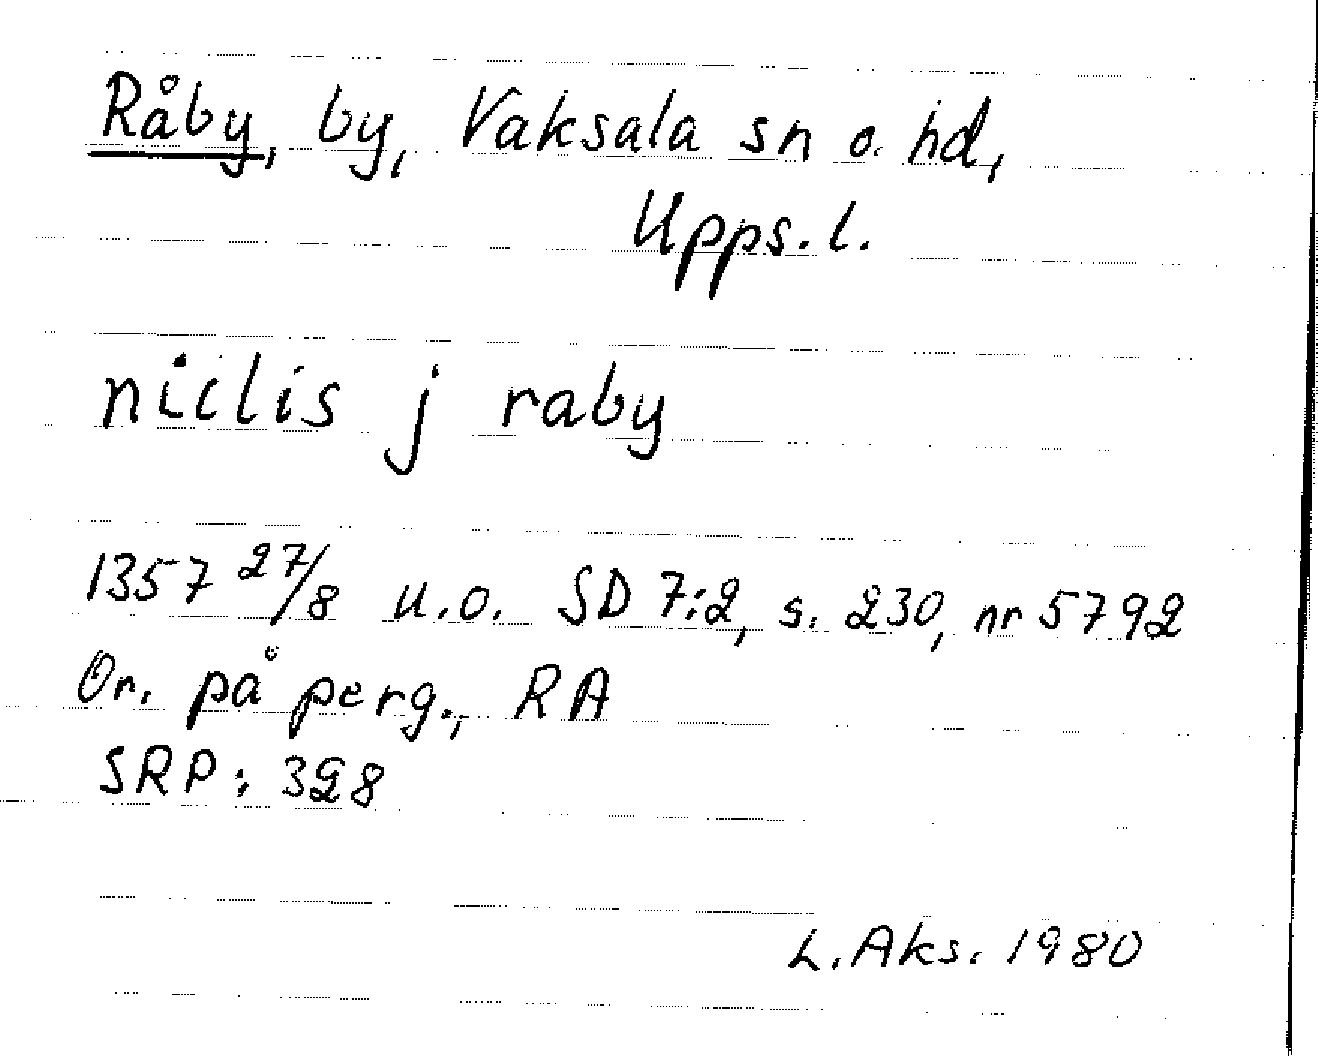 Råby, by, Vaksala sn o. hd,
Upps. l.
niclis j raby
1357 27/8 u.o. SD 7:2, s. 230, nr 5792
Or. på perg., RA
SRP: 328
L. Aks. 1980